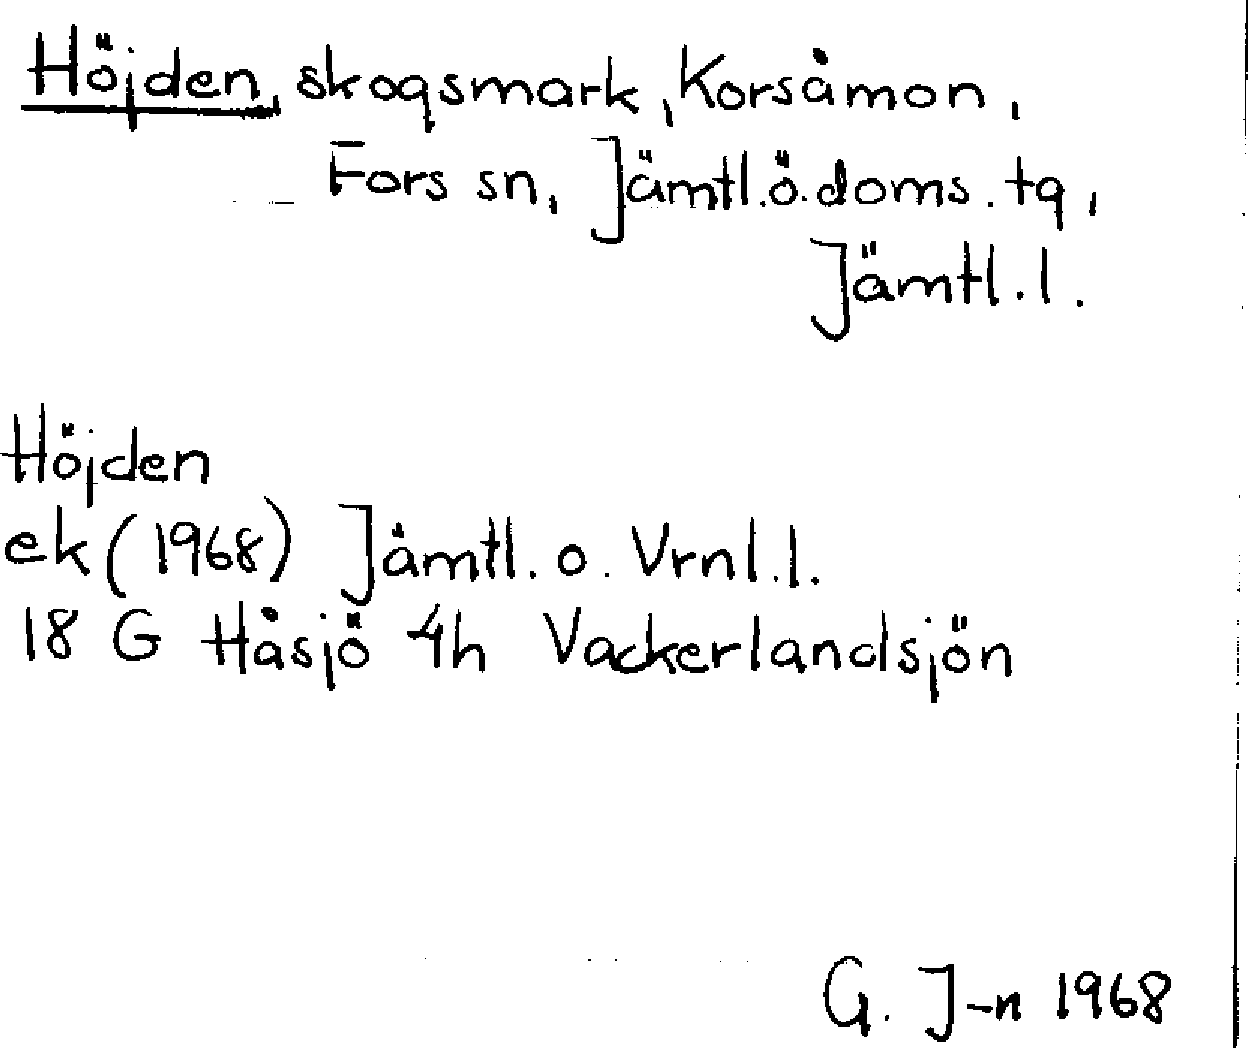 Höjden, skogsmark, Korsåmon,
Fors sn, Jämtl.ö.doms.tg,
Jämtl.l.
Höjden
ek (1968) Jämtl. o. Vrnl.l.
18 G Håsjö 4h Vackerlandsjön
G. J-n 1968